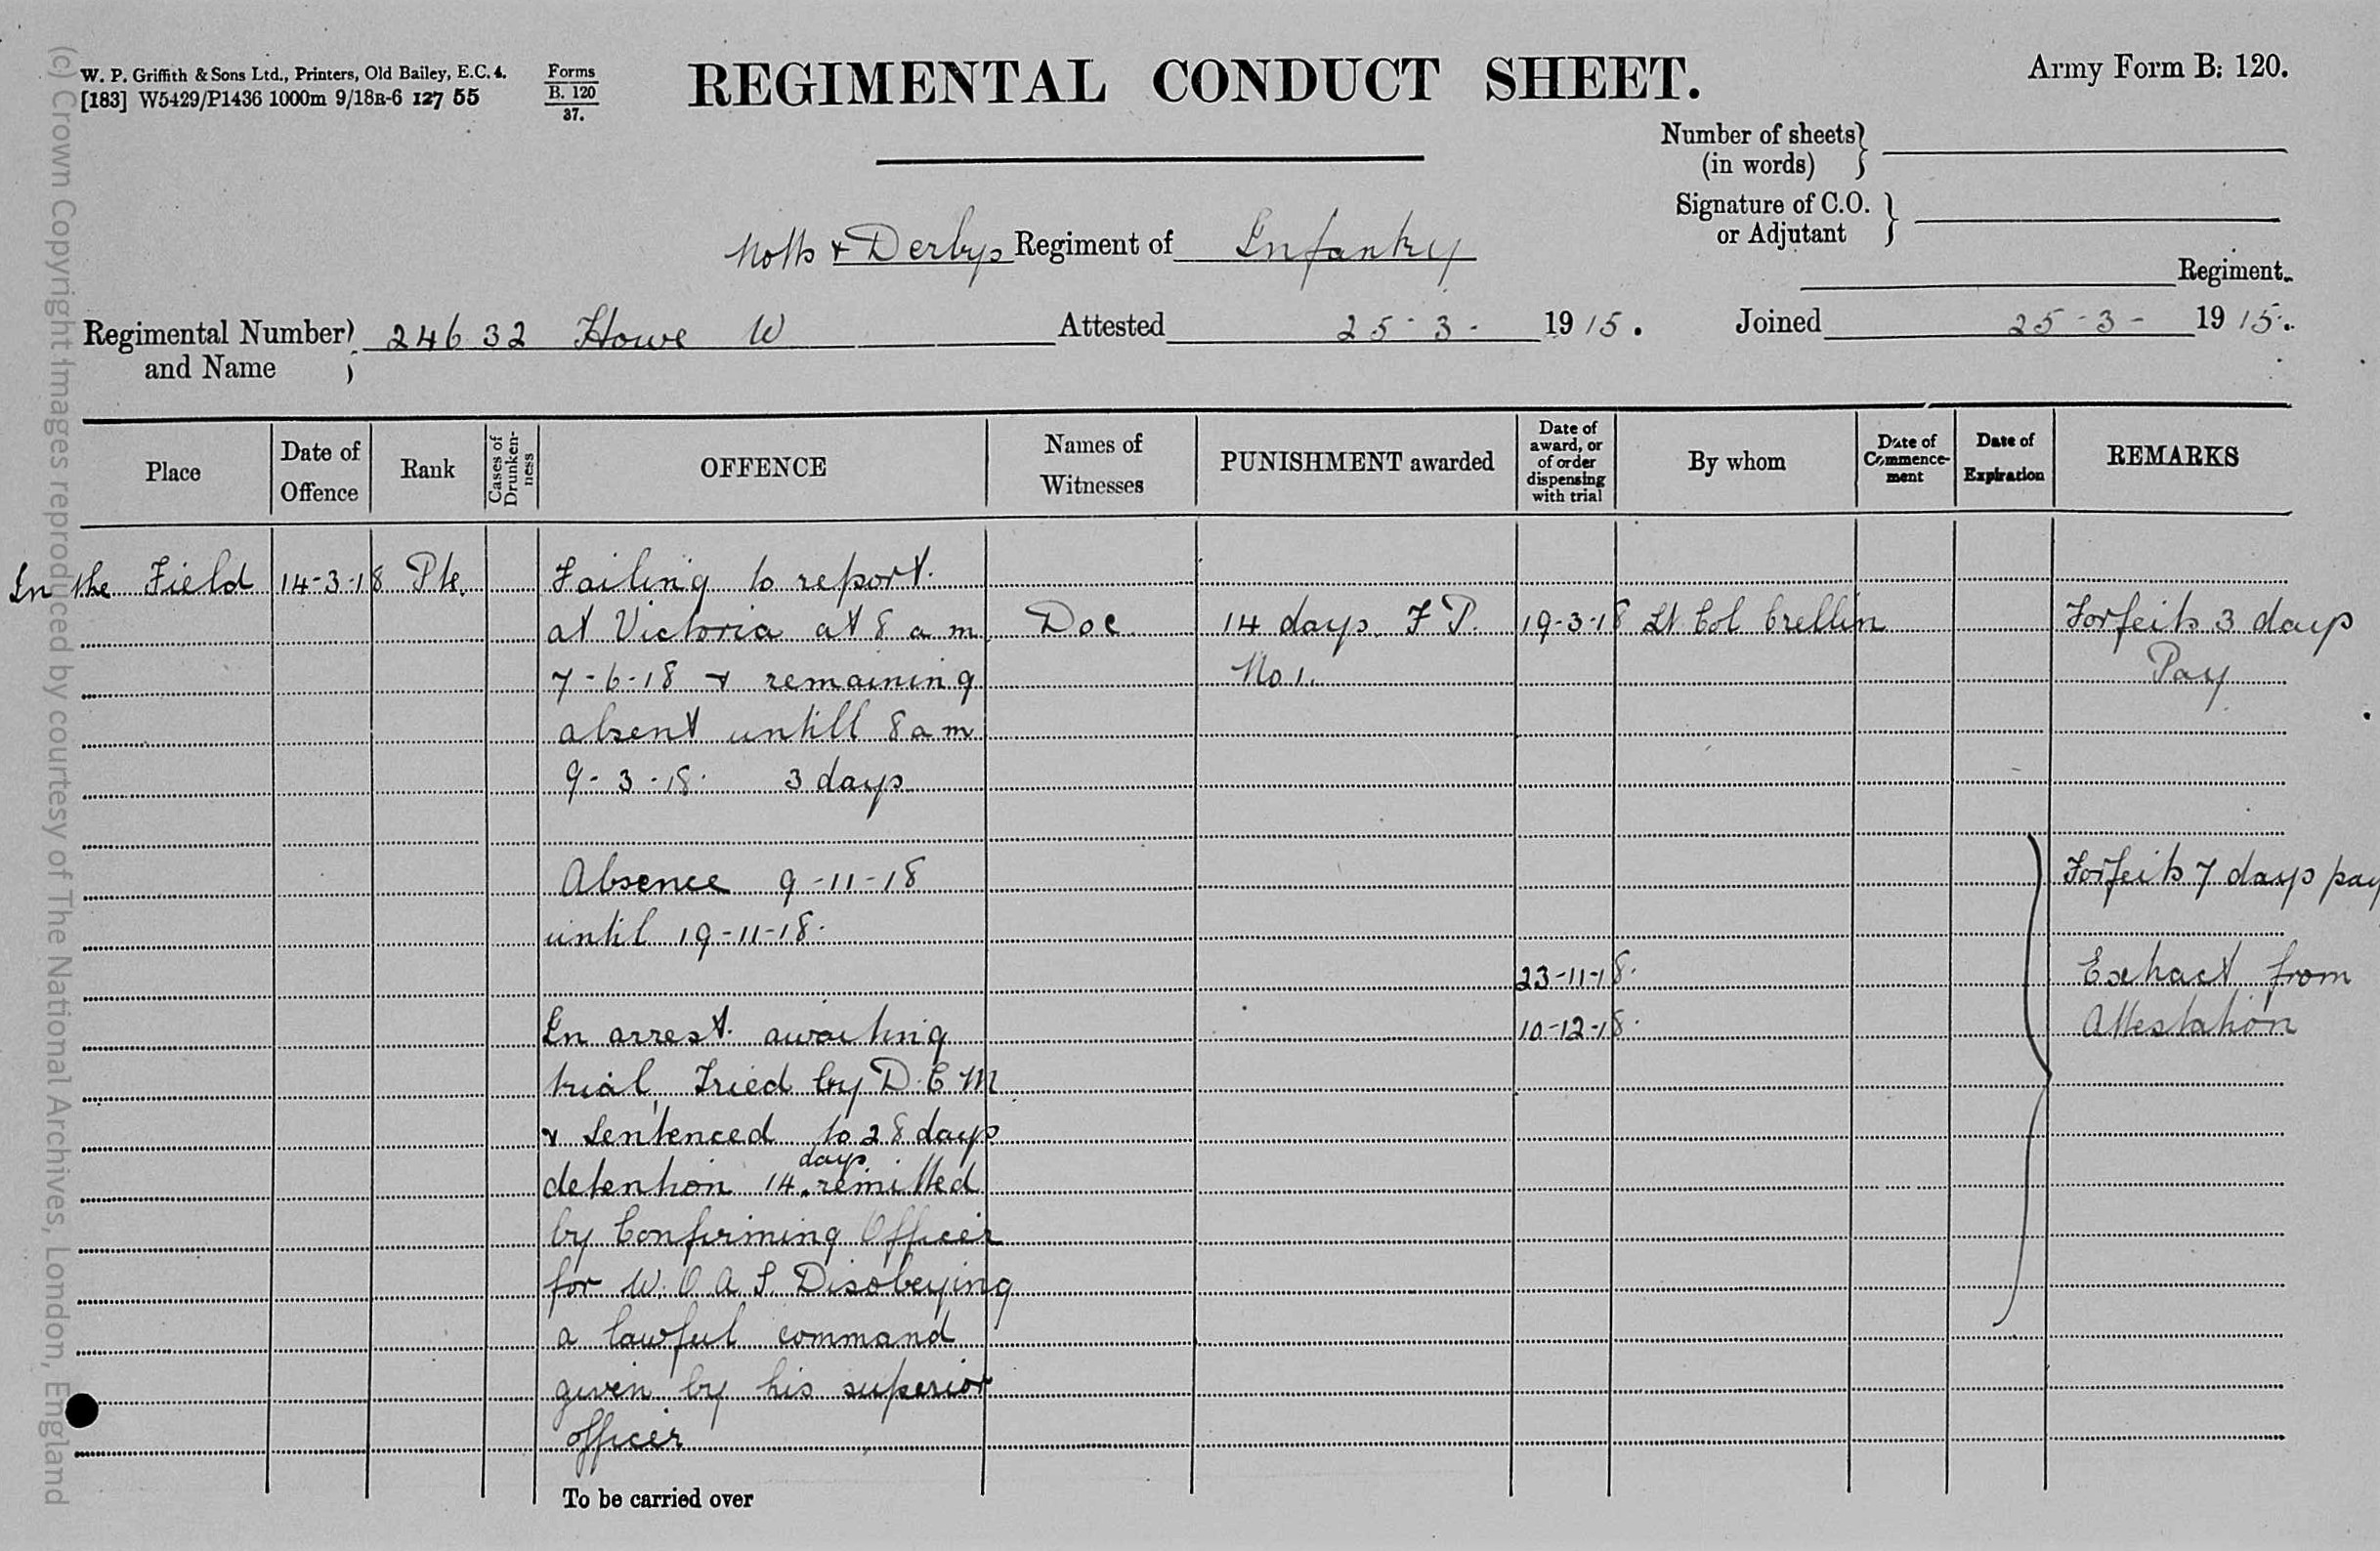 W. P. Griffith & Sons Ltd., Printers, Old Bailey, E.C. 4.
[183] W5429/P1436 1000m 9/18R-6 127 55
Forms
B. 120
37.
REGIMENTAL CONDUCT SHEET.
Army Form B. 120.
Number of sheets}
(in words)
Signature of C.O. }
or Adjutant
Notts & Derbys Regiment of Infantry
Regiment.
Regimental Number} 24632 Howe W Attested 25-3-1915. Joined 25-3-1915.
and Name
Place
Date of
Offence
Rank
Cases of
Drunken-
ness
OFFENCE
Names of
Witnesses
PUNISHMENT awarded
Date of
award, or
of order
dispensing
with trial
By whom
Date of
Commence-
ment
Date of
Expiration
REMARKS
In the Field 14-3-18 Pte. Failing to report
at Victoria at 8 a m Doc 14 days F P. 19-3-18 Lt Col Crellin Forfeits 3 days
7-6-18 & remaining No 1. Pay
absent untill 8 a m
9-3-18. 3 days
Absence 9-11-18 Forfeits 7 days pay
until 19-11-18.
23-11-18. Extract from
In arrest awaiting 10-12-18. Attestation
trial, Tried by D.C.M
& Sentenced to 28 days
days
detention 14 remitted
by Confirming Officer
for W.O.A.S. Disobeying
a lawful command
given by his superior
officer
To be carried over
(c) Crown Copyright Images reproduced by courtesy of The National Archives, London, England